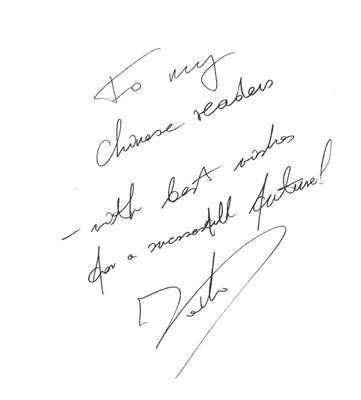 To my
Chinese readers
- with best wishes
for a successfull future!